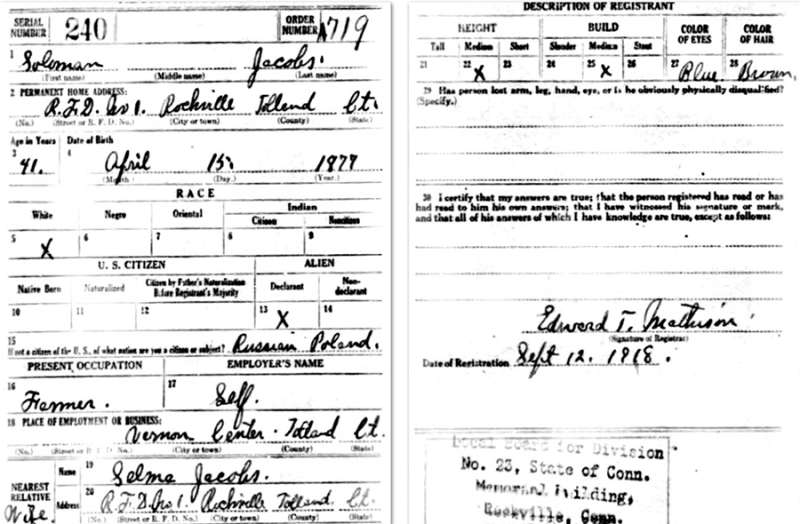 SERIAL NUMBER 240 ORDER NUMBER A719
1 Soloman Jacobs.
(First name) (Middle name) (Last name)
2 PERMANENT HOME ADDRESS:
R.F.D. No 1. Rockville Tolland Ct.
(No.) (Street or R. F. D. No.) (City or town) (County) (State)
Age in Years Date of Birth
3 41. 4 April 15, 1877
(Month) (Day.) (Year.)
RACE
White Negro Oriental Indian
Citizen Noncitizen
5 X 6 7 8 9
U. S. CITIZEN ALIEN
Native Born Naturalized Citizen by Father's Naturalization Before Registrant's Majority Declarant Non-declarant
10 11 12 13 X 14
15
If not a citizen of the U. S., of what nation are you a citizen or subject? Russian Poland.
PRESENT OCCUPATION EMPLOYER'S NAME
16 Farmer. 17 Self.
18 PLACE OF EMPLOYMENT OR BUSINESS:
Vernon Center. Tolland Ct.
(No.) (Street or R. F. D. No.) (City or town) (County) (State)
NEAREST RELATIVE Name 19 Selma Jacobs.
Wife. Address 20 R.F.D. No 1. Rockville Tolland Ct.
(No.) (Street or R. F. D. No.) (City or town) (County) (State)
DESCRIPTION OF REGISTRANT
HEIGHT BUILD COLOR OF EYES COLOR OF HAIR
Tall Medium Short Slender Medium Stout
21 22 X 23 24 25 X 26 27 Blue 28 Brown.
29 Has person lost arm, leg, hand, eye, or is he obviously physically disqualified?
(Specify.)
30 I certify that my answers are true; that the person registered has read or has
had read to him his own answers; that I have witnessed his signature or mark,
and that all of his answers of which I have knowledge are true, except as follows:
Edward T. Mathison
(Signature of Registrar)
Date of Registration Sept 12. 1918.
Local Board for Division
No. 23, State of Conn.
Memorial Building,
Rockville, Conn.